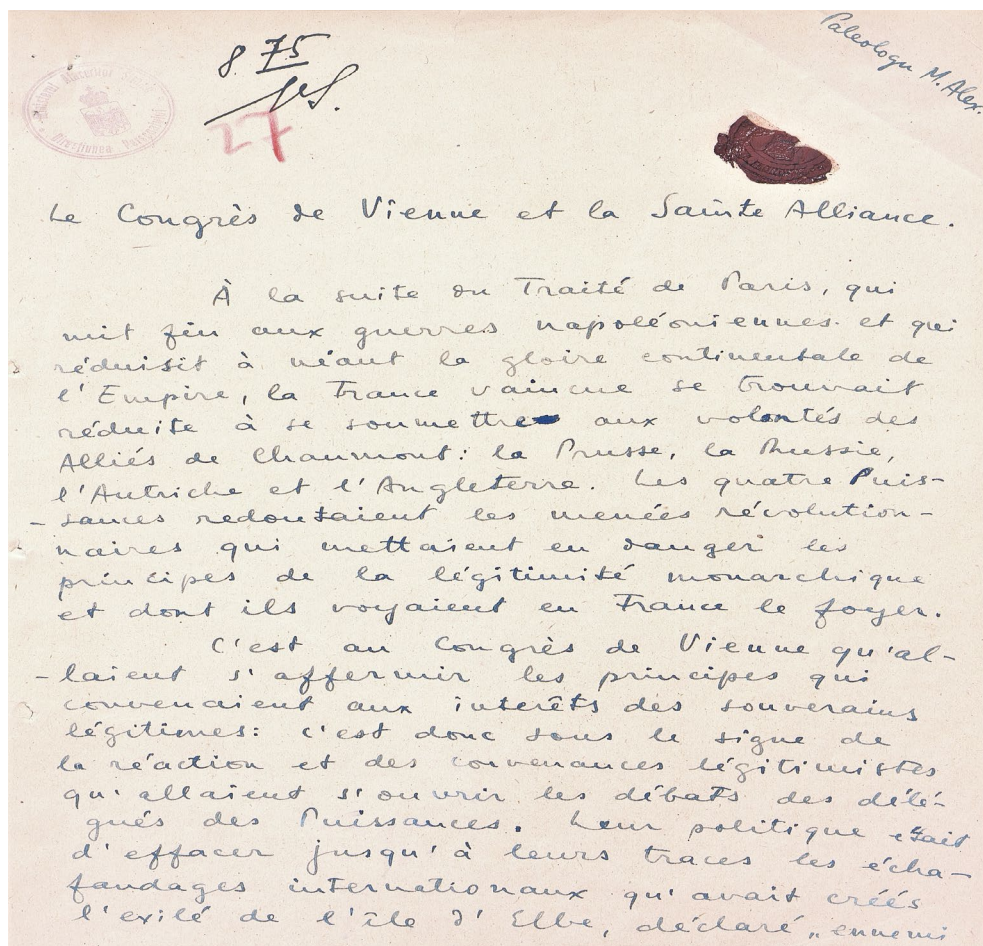 Paleologu M. Alex.
8.75
27
Le Congrès de Vienne et la Sainte Alliance.
À la suite du Traité de Paris, qui
mit fin aux guerres napoléoniennes et qui
réduisit à néant la gloire continentale de
l'Empire, la France vaincue se trouvait
réduite à se soumettre aux volontés des
Alliés de Chaumont: la Prusse, la Russie,
l'Autriche et l'Angleterre. Les quatre Puis-
- sances redoutaient les menées révolution-
naires qui mettaient en danger les
principes de la légitimité monarchique
et dont ils voyaient en France le foyer.
C'est au Congrès de Vienne qu'al-
- laient s'affermir les principes qui
convenaient aux intérêts des souverains
légitimes: c'est donc sous le signe de
la réaction et des convenances légitimistes
qu'allaient s'ouvrir les débats des délé-
gués des Puissances. Leur politique était
d'effacer jusqu'à leurs traces les écha-
faudages internationaux qu'avait créés
l'exilé de l'île d'Elbe, déclaré „ennemi